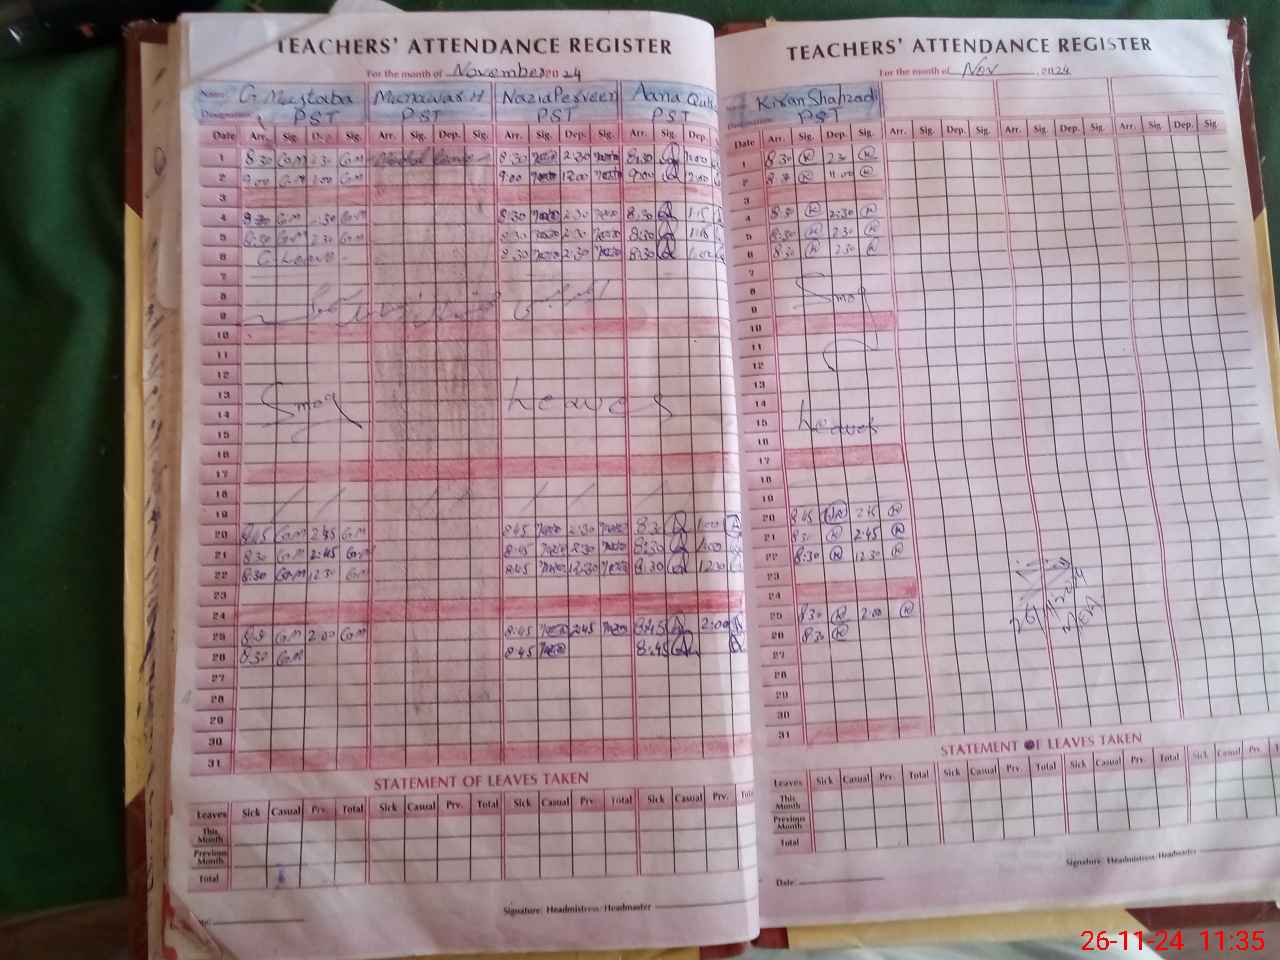 TEACHERS' ATTENDANCE REGISTER
For the month of November 2024
Name: G. Mujtaba Munawar H Nazia Perveen Aana Qutb
Designation PST PST PST PST
Date Arr. Sig. Dep. Sig. Arr. Sig. Dep. Sig. Arr. Sig. Dep. Sig. Arr. Sig. Dep.
1 8:30 G.M 2:30 G.M 8:30 2:30 8:30 2:00
2 9:00 G.M 1:00 G.M 9:00 12:00 9:00
3
4 8:30 G.M 2:30 G.M 8:30 2:30 8:30 1:15
5 8:30 G.M 2:30 G.M 8:30 2:30 8:30 1:15
6 C. Leave 8:30 2:30 8:30
7
8
9
10
11
12
13 Smog Leaves
14
15
16
17
18
19
20 8:45 G.M 2:45 G.M 8:45 2:30 8:30 1:00
21 8:30 G.M 2:45 G.M 8:45 2:30 8:30 1:00
22 8:30 G.M 12:30 G.M 8:45 12:30 8:30 12:30
23
24
25 G.M 2:00 G.M 8:45 2:45 8:45 2:00
26 8:30 G.M 8:45 8:45
27
28
29
30
31
STATEMENT OF LEAVES TAKEN
Leaves Sick Casual Prv. Total Sick Casual Prv. Total Sick Casual Prv. Total Sick Casual Prv. Total
This Month
Previous Month
Total
Signature: Headmistress/Headmaster
TEACHERS' ATTENDANCE REGISTER
For the month of Nov 2024
Kiran Shahzadi
Designation PST
Date Arr. Sig. Dep. Sig. Arr. Sig. Dep. Sig. Arr. Sig. Dep. Sig. Arr. Sig. Dep. Sig.
1 8:30 R 2:30 R
2 R 11:00 R
3
4 8:30 R 2:30 R
5 8:30 R 2:30 R
6 8:30 R 2:30 R
7
8 Smog
9
10
11
12
13
14
15 Leaves
16
17
18
19
20 8:45 R 2:45 R
21 8:30 R 2:45 R
22 8:30 R 12:30 R
23
24
25 8:30 R 2:00 R
26 8:30 R
27
28
29
30
31
26/11/2024
STATEMENT OF LEAVES TAKEN
Leaves Sick Casual Prv. Total Sick Casual Prv. Total Sick Casual Prv. Total Sick Casual Prv.
This Month
Previous Month
Total
Signature: Headmistress/Headmaster
Date:
26-11-24 11:35